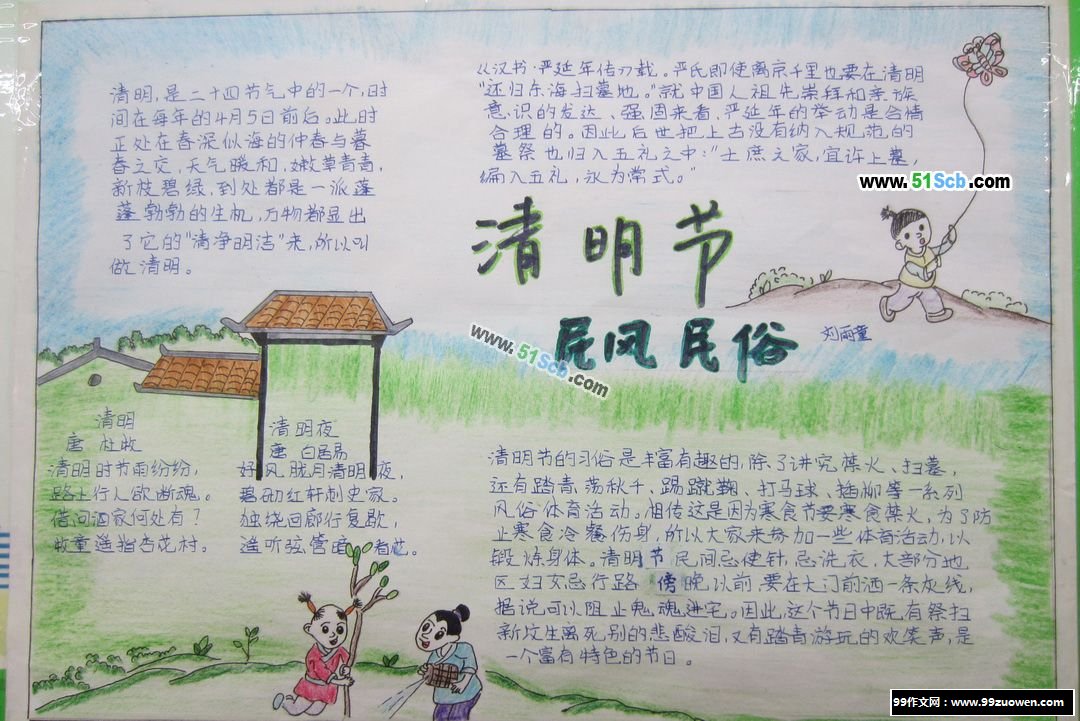 清明,是二十四节气中的一个,时
间在每年的4月5日前后。此时
正处在春深似海的仲春与暮
春之交,天气暖和,嫩草青青,
新枝碧绿,到处都是一派蓬
蓬勃勃的生机,万物都显出
了它的"清净明洁"来,所以叫
做清明。
从汉书·严延年传刀载。严氏即使离京千里也要在清明
"还归东海扫墓地。"就中国人祖先崇拜和亲族
意识的发达、强固来看,严延年的举动是合情
合理的。因此后世把上古没有纳入规范的
墓祭也归入五礼之中:"士庶之家,宜许上墓,
编入五礼,永为常式。"
www.51Scb.com
清明节
民风民俗
刘雨童
www.51Scb.com
清明
唐 杜牧
清明时节雨纷纷,
路上行人欲断魂。
借问酒家何处有?
牧童遥指杏花村。
清明夜
唐 白居易
好风胧月清明夜,
碧砌红轩刺史家。
独绕回廊行复歇,
遥听弦管暗看花。
清明节的习俗是丰富有趣的,除了讲究禁火、扫墓,
还有踏青、荡秋千、踢蹴鞠、打马球、插柳等一系列
风俗体育活动。相传这是因为寒食节要寒食禁火,为了防
止寒食冷餐伤身,所以大家来参加一些体育活动,以
锻炼身体。清明节民间忌使针,忌洗衣,大部分地
区妇女忌行路 傍晚以前,要在大门前洒一条灰线,
据说可以阻止鬼魂进宅。因此,这个节日中既有祭扫
新坟生离死别的悲酸泪,又有踏青游玩的欢笑声,是
一个富有特色的节日。
99作文网:www.99zuowen.com